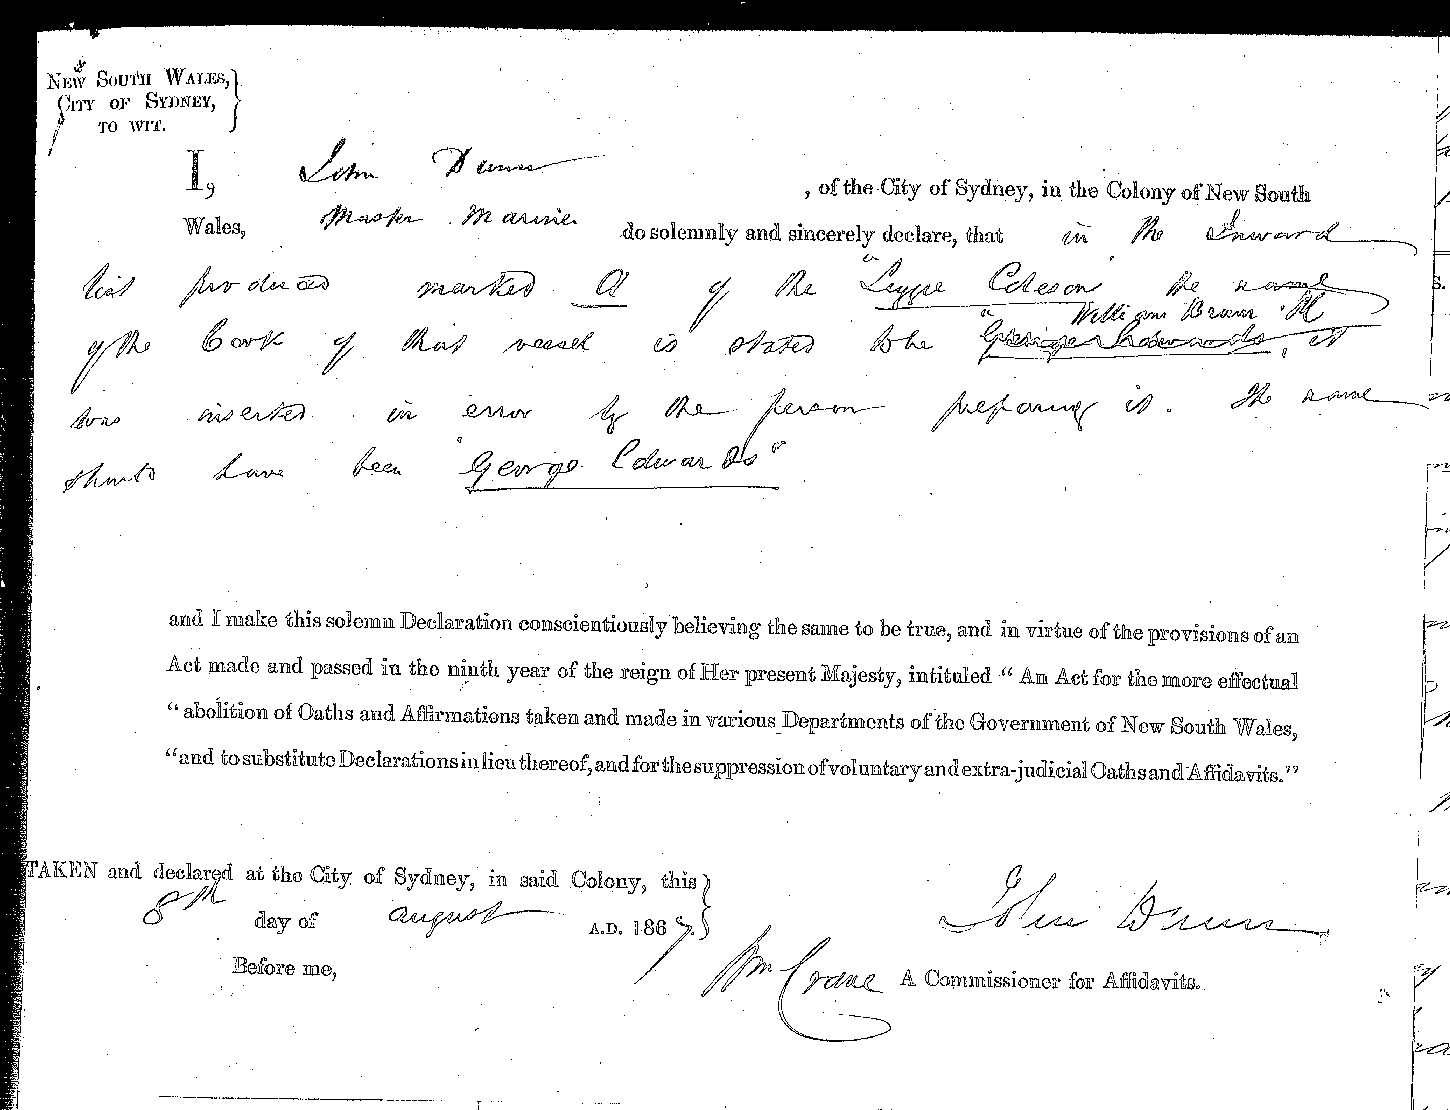 NEW SOUTH WALES,
CITY OF SYDNEY,
TO WIT.
I, John Dunn, of the City of Sydney, in the Colony of New South
Wales, Master Mariner do solemnly and sincerely declare, that in the Inward
list produced marked A of the "Lizzie Coleson" the name
William Brown
of the Cook of that vessel is stated to be "George Edwards, it
was inserted in error by the person preparing it. The name
should have been "George Edwards"
and I make this solemn Declaration conscientiously believing the same to be true, and in virtue of the provisions of an
Act made and passed in the ninth year of the reign of Her present Majesty, intituled "An Act for the more effectual
"abolition of Oaths and Affirmations taken and made in various Departments of the Government of New South Wales,
"and to substitute Declarations in lieu thereof, and for the suppression of voluntary and extra-judicial Oaths and Affidavits."
TAKEN and declared at the City of Sydney, in said Colony, this
8th day of August A.D. 1867.
John Dunn
Before me,
Wm Crane A Commissioner for Affidavits.